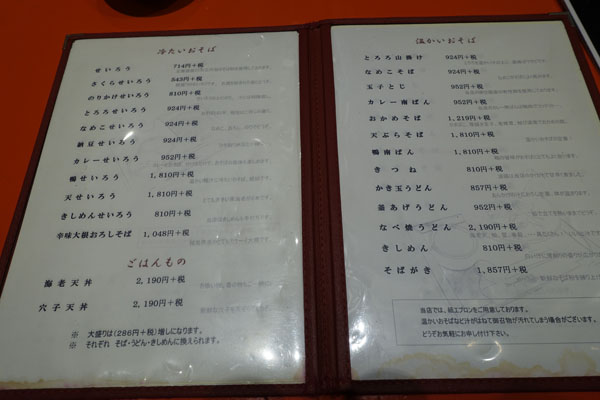 冷たいおそば
せいろう 714円+税
さくらせいろう 843円+税
のりかけせいろう 810円+税
とろろせいろう 924円+税
なめこせいろう 924円+税
納豆せいろう 924円+税
カレーせいろう 952円+税
鴨せいろう 1,810円+税
天せいろう 1,810円+税
きしめんせいろう 810円+税
辛味大根おろしそば 1,048円+税
ごはんもの
海老天丼 2,190円+税
穴子天丼 2,190円+税
※ 大盛りは(286円+税)増しになります。
※ それぞれ そば・うどん・きしめんに換えられます。
温かいおそば
とろろ山掛け 924円+税
なめこそば 924円+税
玉子とじ 952円+税
カレー南ばん 952円+税
おかめそば 1,219円+税
天ぷらそば 1,810円+税
鴨南ばん 1,810円+税
きつね 810円+税
かき玉うどん 857円+税
釜あげうどん 952円+税
なべ焼うどん 2,190円+税
きしめん 810円+税
そばがき 1,857円+税
当店では、紙エプロンをご用意しております。
温かいおそばなど汁がはねて御召物が汚れてしまう場合がございます。
どうぞお気軽にお申し付け下さい。